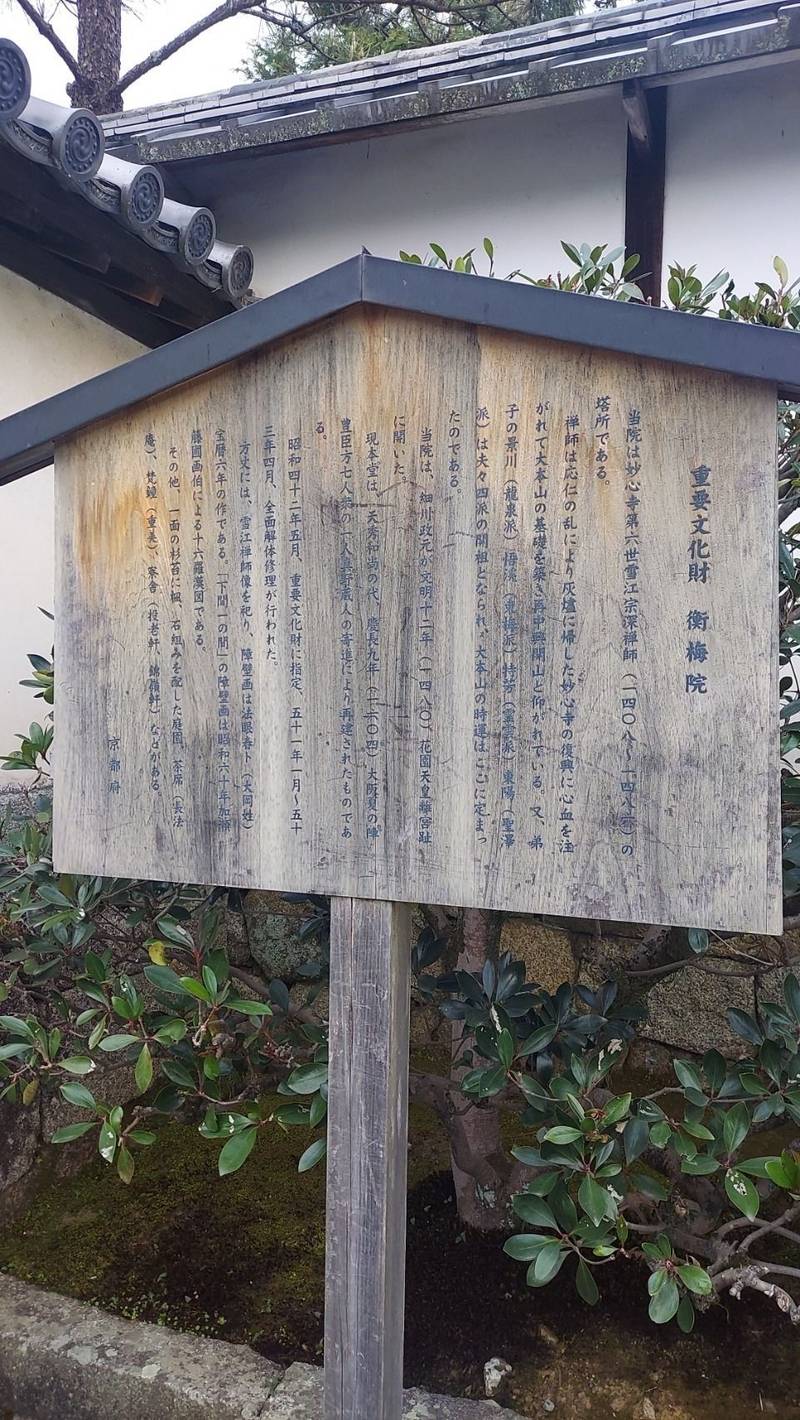 重要文化財 衡梅院
当院は妙心寺第六世雪江宗深禅師(一四〇八〜一四八六)の
塔所である。
禅師は応仁の乱により灰爐に帰した妙心寺の復興に心血を注
がれて大本山の基礎を築き再中興開山と仰がれている。又、弟
子の景川(龍泉派)悟渓(東海派)特芳(霊雲派)東陽(聖澤
派)は夫々四派の開祖となられ、大本山の時運はここに定まっ
たのである。
当院は、細川政元が文明十二年(一四八〇)、花園天皇離宮趾
に開いた。
現本堂は、天秀和尚の代、慶長九年(一六〇四)大阪夏の陣
豊臣方七人衆の一人真野蔵人の寄進により再建されたものであ
る。
昭和四十二年五月、重要文化財に指定、五十一年一月〜五十
三年四月、全面解体修理が行われた。
方丈には、雪江禅師像を祀り、障壁画は法眼春卜(大岡姓)
宝暦六年の作である。「下間一の間」の障壁画は昭和六十年加藤
藤國画伯による十六羅漢図である。
その他、一面の杉苔に楓、石組みを配した庭園、茶席(長法
庵)、梵鐘(重美)、寮舎(投老軒、錦嶺軒)などがある。
京都府